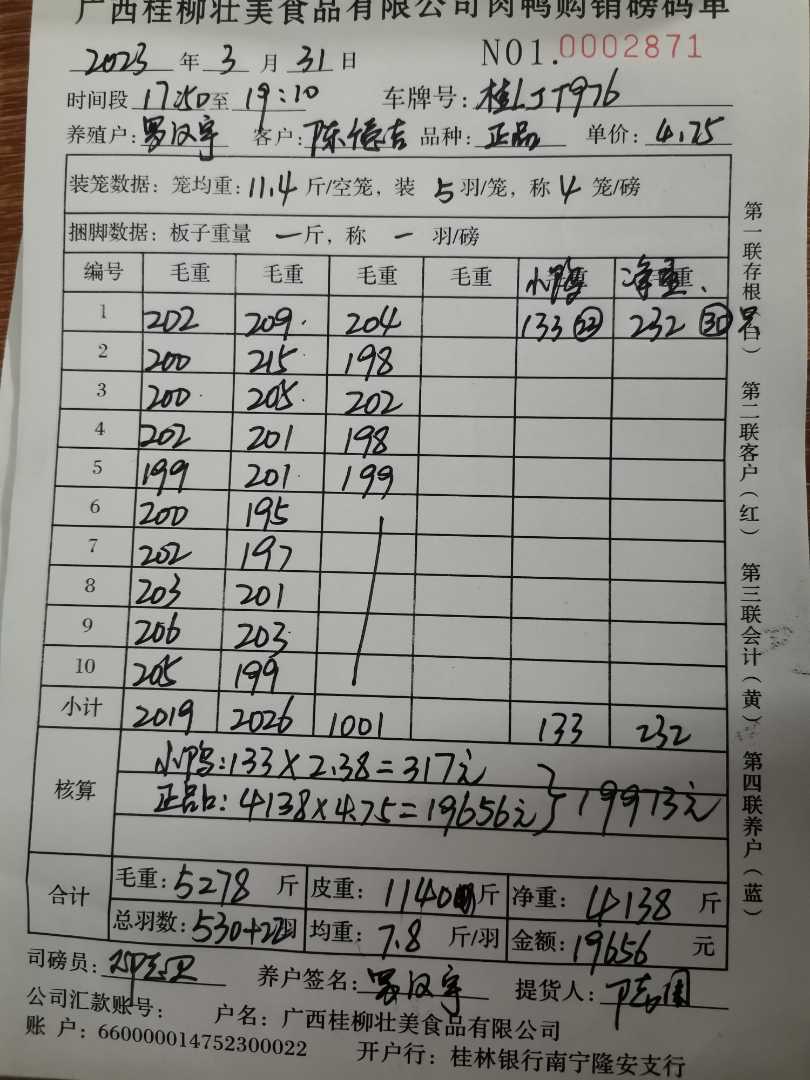 广西桂柳壮美食品有限公司肉鸭购销磅码单
2023 年 3 月 31 日 NO1.0002871
时间段 17:50 至 19:10 车牌号: 桂LJT976
养殖户: 罗汉宇 客户: 陈德吉 品种: 正品 单价: 4.75
装笼数据: 笼均重: 11.4 斤/空笼, 装 5 羽/笼, 称 4 笼/磅
捆脚数据: 板子重量 一 斤, 称 一 羽/磅
编号 毛重 毛重 毛重 毛重 小鸭 净重
1 202 209 204 133 (22) 232 (30)只
2 200 215 198
3 200 205 202
4 202 201 198
5 199 201 199
6 200 195
7 202 197
8 203 201
9 206 203
10 205 199
小计 2019 2026 1001 133 232
核算 小鸭: 133×2.38=317元
正品: 4138×4.75=19656元 } 19973元
合计 毛重: 5278 斤 皮重: 1140 斤 净重: 4138 斤
总羽数: 530+22羽 均重: 7.8 斤/羽 金额: 19656 元
司磅员: 养户签名: 罗汉宇 提货人:
公司汇款账号: 户名: 广西桂柳壮美食品有限公司
账 户: 660000014752300022 开户行: 桂林银行南宁隆安支行
第一联存根(白) 第二联客户(红) 第三联会计(黄) 第四联养户(蓝)